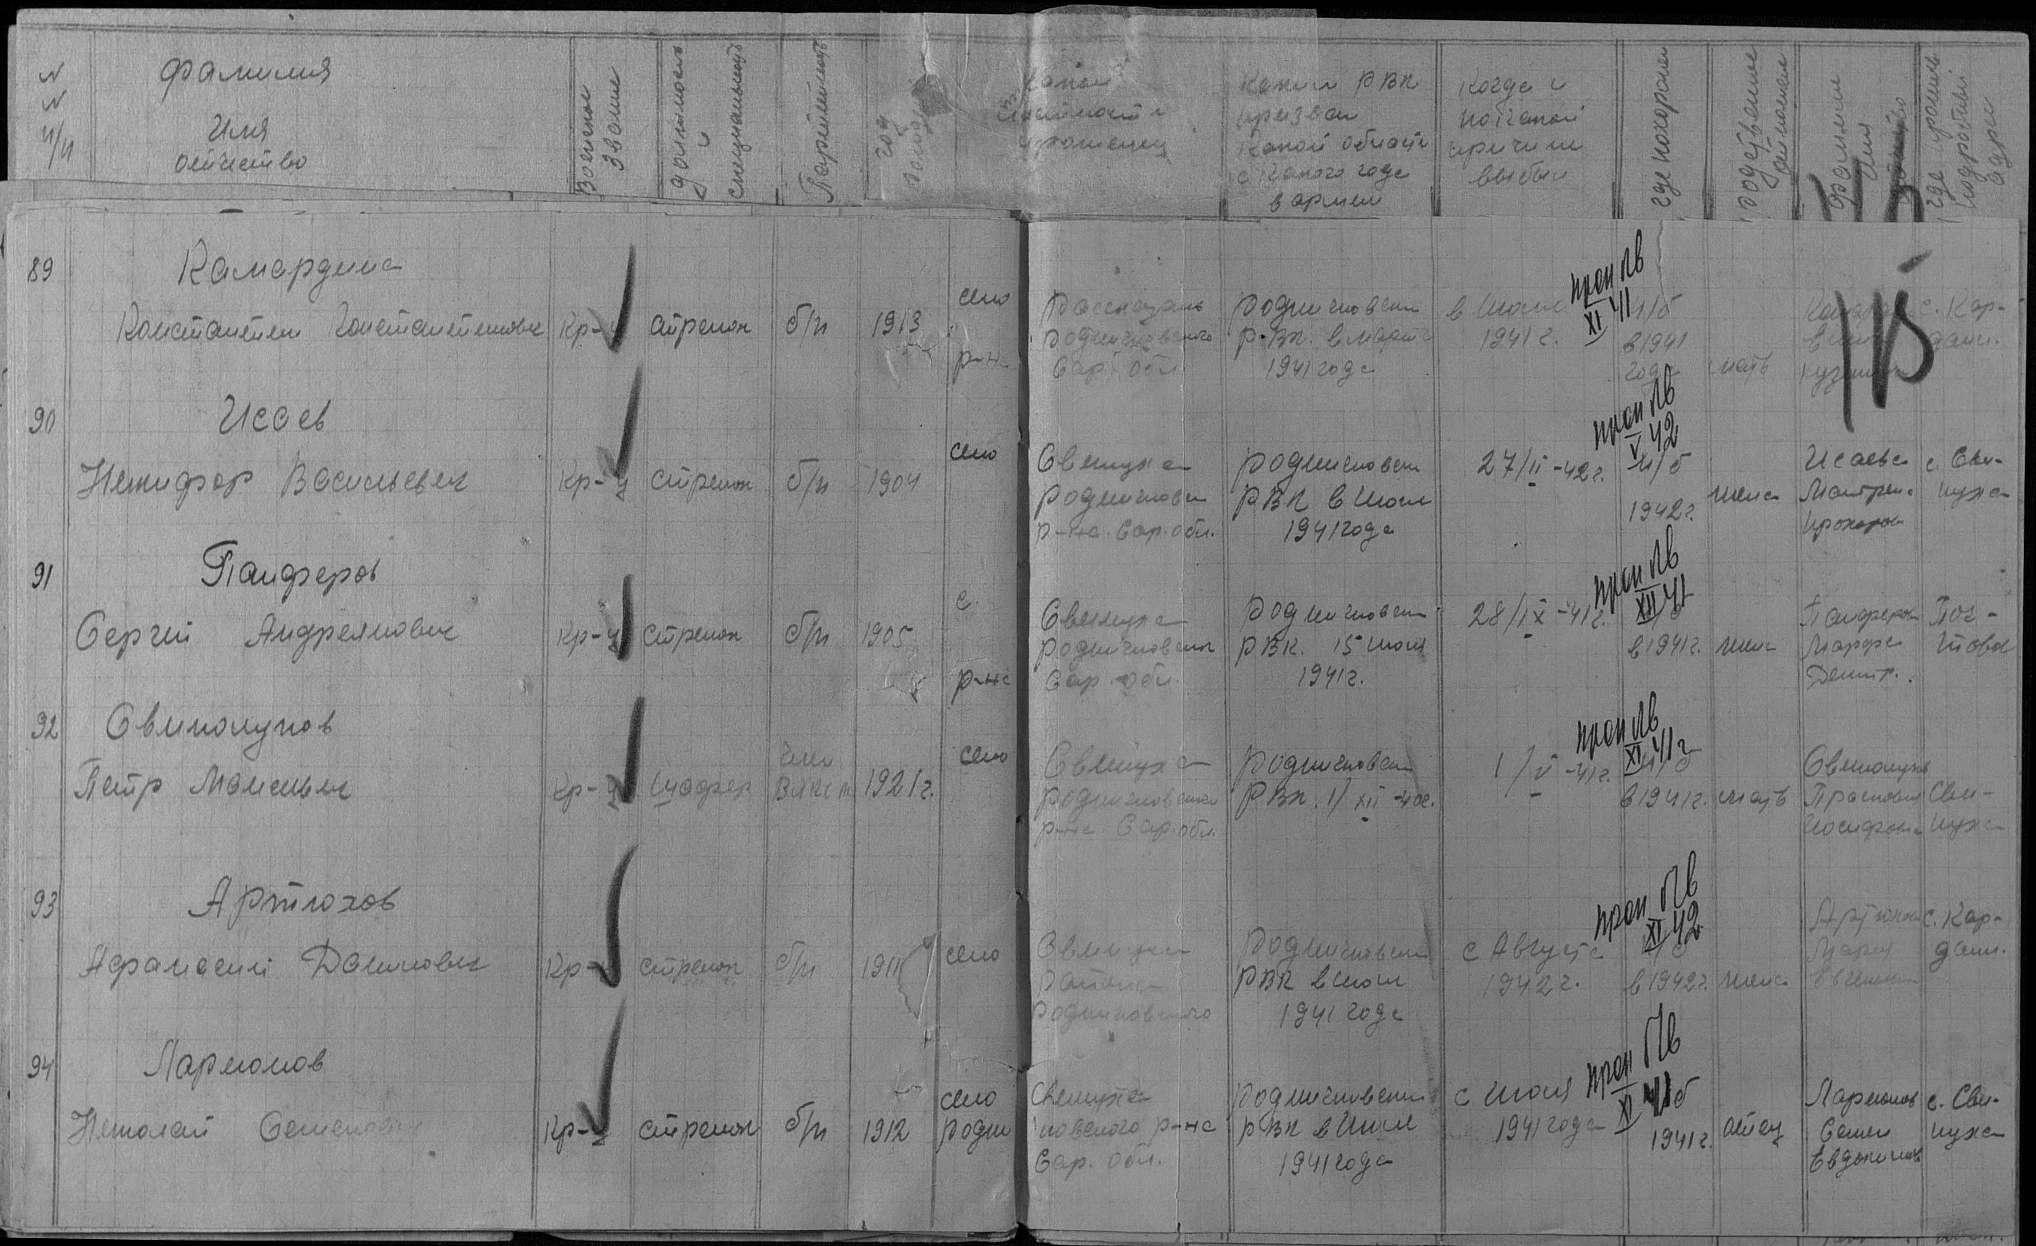 N
N
п/п
фамилия
Имя
отчество
Военное
звание
должность
и
специальность
Партийность
год
Какой
местности
уроженец
каким РВК
призван
какой области
с какого года
в армии
когда и
по какой
причине
выбыл
где похоронен
родственные
фамилия
имя
где прожив
подробный
адрес
89
Камардина
Константин Константинович
Кр-ц
стрелок
б/п
1913
село
р-на
Родничковского
Сар. обл.
Родничковским
РВК. в марте
1941 года
в Июле
1941 г.
проп. б/в
XI 41
н/б
в 1941
года
мать
с. Кар-
даил.
115
90
Исаев
Никифор Васильевич
Кр-ц
стрелок
б/п
1904
село
Свинуха
Родничковск
р-на. Сар. обл.
Родничковским
РВК в Июле
1941 года
27/II-42 г.
проп. б/в
V 42
н/б
1942 г.
жена
Исаева
Матрена
Прохоров
с. Сви-
нуха
91
Панферов
Сергей Андреянович
Кр-ц
стрелок
б/п
1905
с.
р-на
Свинуха
Родничковский
Сар. обл.
Родничковским
РВК. 15 июля
1941 г.
28/IX-41 г.
проп. б/в
XII 41
в 1941 г.
жена
Панферова
Марфа
Дмитр.
92
Свинолупов
Петр Моисеевич
Кр-ц
член
ВЛКСМ
1921 г.
село
Свинуха
Родничковского
р-на Сар. обл.
Родничковским
РВК. 1/XII-40 г.
1/V-41 г.
проп. б/в
XI 41 г
н/б
в 1941 г.
мать
Свинолупова
Прасковья
Иосифовна
Сви-
нуха
93
Артюхов
Афанасий Данилович
Кр-ц
стрелок
б/п
1911
село
Свинуха
Родничковского
Родничковским
РВК в июле
1941 года
с Августа
1942 г.
проп. б/в
XI 42
н/б
в 1942 г.
жена
Артюхова
Мария
с. Кар-
даил.
94
Ларионов
Николай Семенович
Кр-ц
стрелок
б/п
1912
село
Родни
Свинуха
чковского р-на
Сар. обл.
Родничковским
РВК в Июле
1941 года
с Июля
1941 года
проп. б/в
XI 41
н/б
1941 г.
отец
Ларионов
Семен
Евдокимов
с. Сви-
нуха